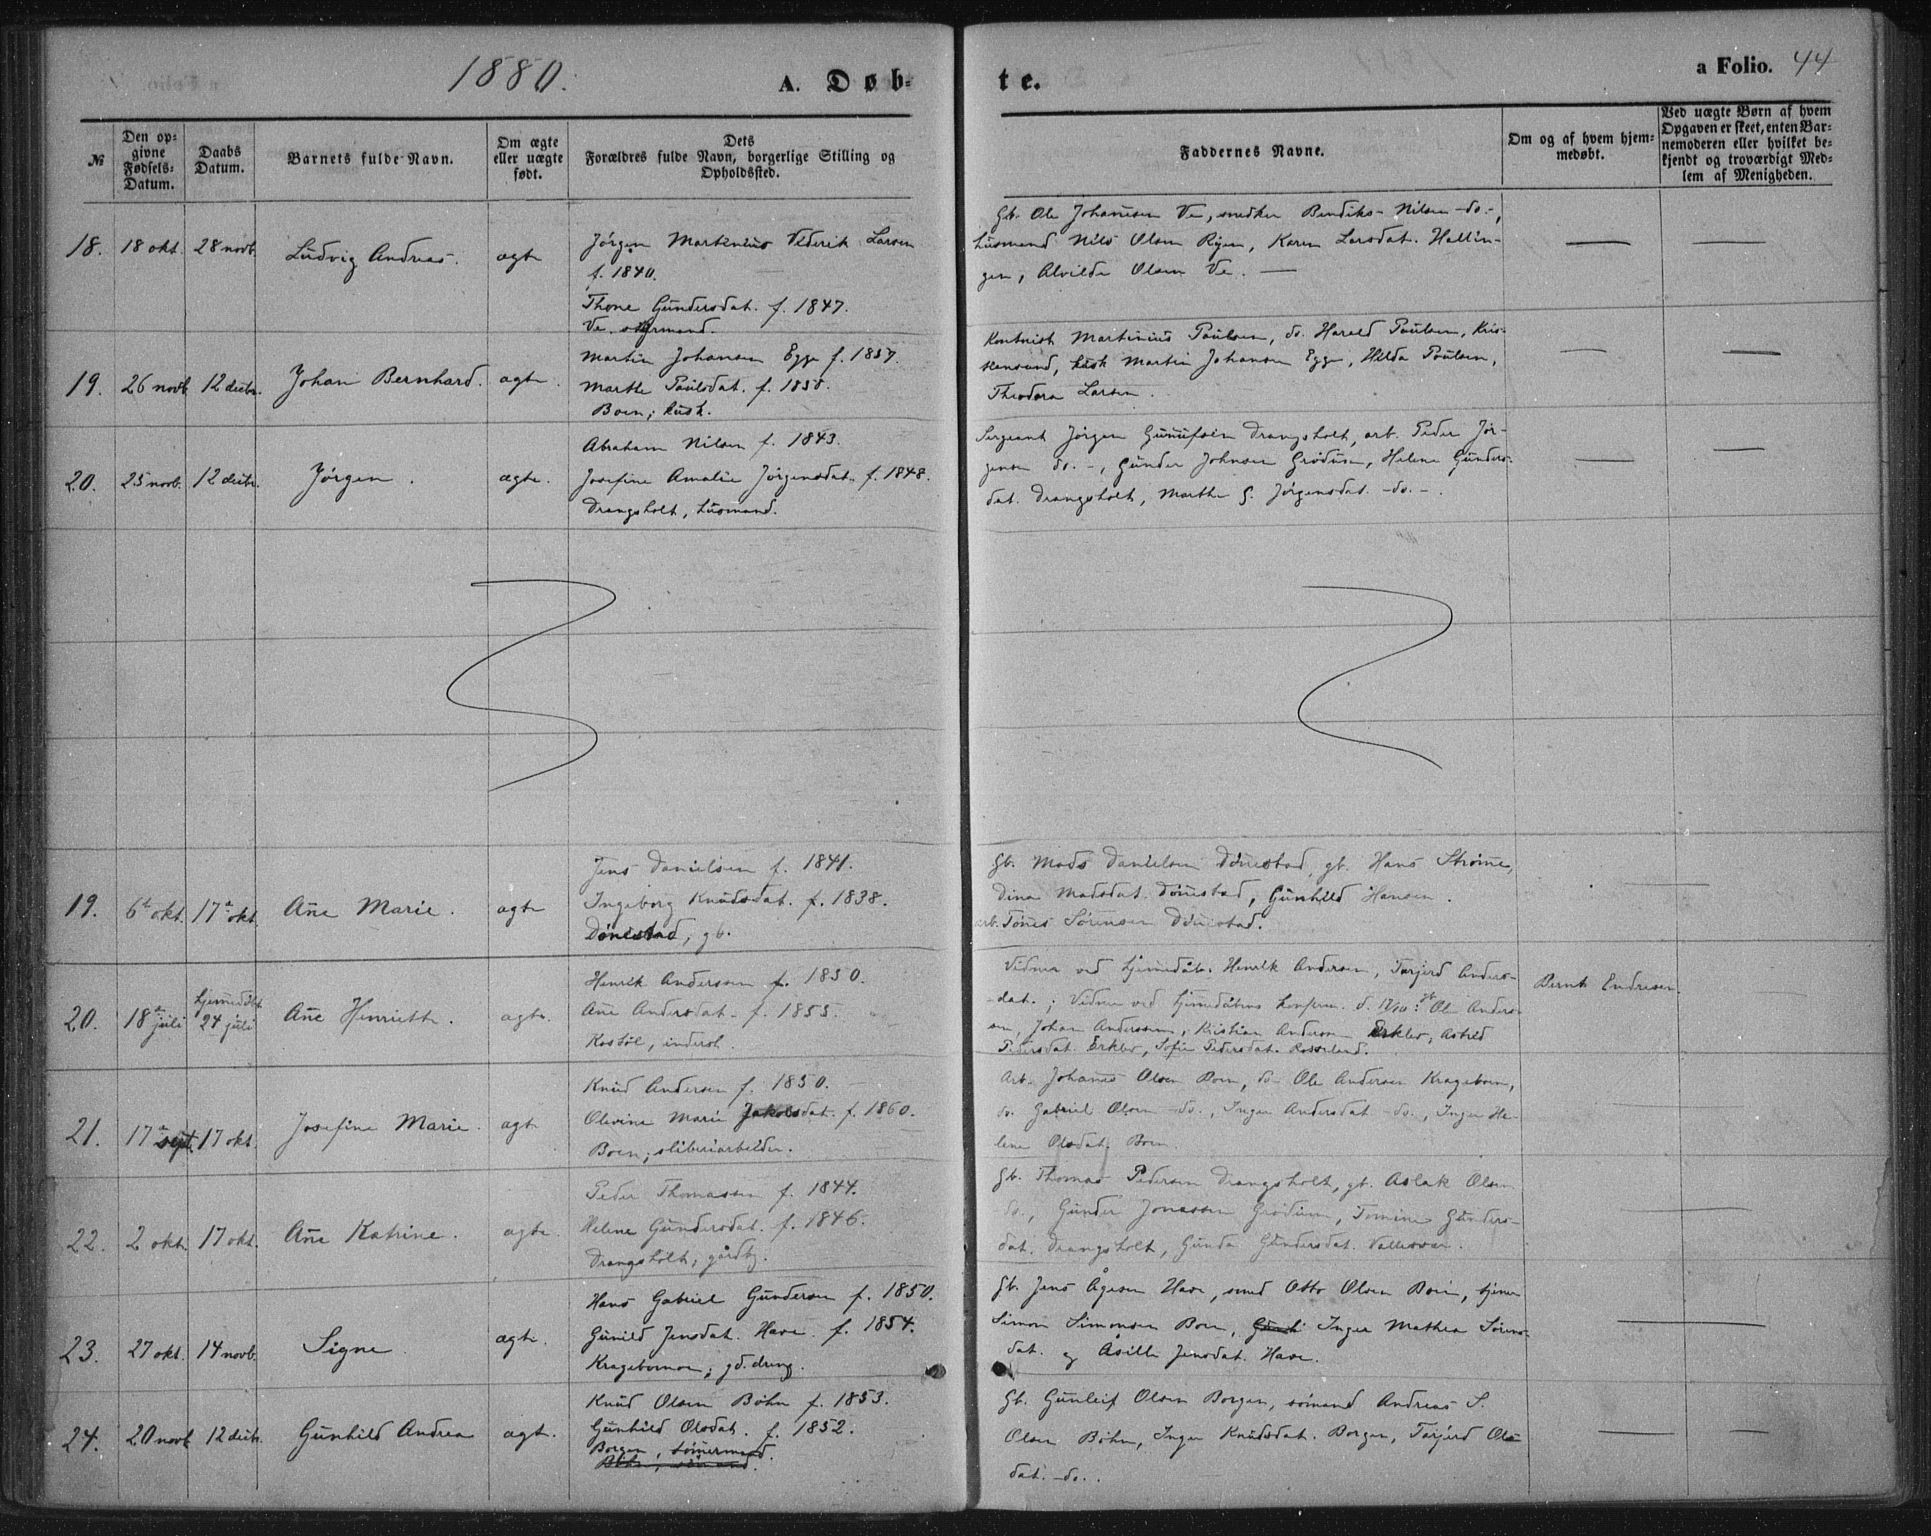 1880.
A. Døb-
te.
a Folio. 44
№
Den op-
givne
Fødsels-
Datum.
Daabs
Datum.
Barnets fulde Navn.
Om ægte
eller uægte
født.
Dets
Forældres fulde Navn, borgerlige Stilling og
Opholdssted.
Faddernes Navne.
Om og af hvem hjem-
medøbt.
Ved uægte Børn af hvem
Opgaven er skeet, enten Bar-
nemoderen eller hvilket be-
kjendt og troværdigt Med-
lem af Menigheden.
18. 18 okt. 28 novb. Ludvig Andreas. ægte
Jørgen Martinius Larsen
f. 1840.
Thone Gundersdat. f. 1847.
Ve. styrmand.
Gb. Ole Johannesen Ve, snedker Bendiks Nilsen -do-,
husmand Nils Olsen Ryen, Karen Larsdat. Hallin-
gen, Alvilde Olsen Ve. —
19. 26 novb 12 decbr. Johan Bernhard. ægte.
Martin Johansen Egge f. 1857.
Marthe Paulsdat. f. 1858.
Boen; kusk.
Kontorist Martinius Paulsen, do. Harald Paulsen, Kris-
tiansund, kusk Martin Johansen Egge, Hilda Paulsen,
Theodora Larsen.
20. 25 novb. 12 decbr. Jørgen. ægte.
Abraham Nilsen f. 1843.
Josefine Amalie Jørgensdat. f. 1848.
Drangsholt, husmand.
Sergeant Jørgen Gunufsen Drangsholt, arb. Peder Jør-
gensen do.-, Gunder Johnsen Grødum, Helene Gunders-
dat. Drangsholt, Marthe G. Jørgensdat. -do.-.
19. 6te okt. 17de okt. Ane Marie. ægte
Jens Danielsen f. 1841.
Ingeborg Knudsdat. f. 1838.
Dønestad, gb.
Gb. Mads Danielsen Dønestad, gb. Hans Strømme,
Dina Madsdat. Dønestad, Gunhild Hansen.
arb. Tønes Sørensen Dønestad.
20. 18de juli hjemmedøbt 24 juli Ane Henriette. ægte.
Henrik Anderssen f. 1850.
Ane Andersdat. f. 1855.
Kostøl, inderst.
Vidner ved hjemmedåb. Henrik Andersen, Torjerd Anders-
dat.; Vidner ved hjemmedåbens konferm. d. 17/10: gb Ole Anders-
sen, Johan Anderssen, Kristian Andersen Erklev, Astrid
Pedersdat. Erklev, Sofie Pedersdat. Rosseland.
Bernt Endresen.
21. 17de sept. 17 okt. Josefine Marie. ægte
Knud Andersen f. 1850.
Olevine Marie Jakobsdat. f. 1860.
Boen; sliberiarbeider.
Arb. Johannes Olsen Boen, do Ole Andersen Krageboen,
do. Gabriel Olsen -do., Inger Andersdat -do., Inger He-
lene Olsdat. Boen
22. 2 okt. 17 okt. Ane Katrine. ægte.
Peder Thomassen f. 1844.
Helene Gundersdat. f. 1846.
Drangsholt; gårdbr.
Gb. Thomas Pedersen Drangsholt, gb. Aslak Olsen
do., Gunder Jonassen Grødum, Tomine Gunders-
dat. Drangsholt, Gunda Gundersdat. Vallesvær.
23. 27 okt. 14 novb. Signe. ægte.
Hans Gabriel Gundersen f. 1850.
Gunild Jensdat. Have. f. 1854.
Krageboen; gd.dreng.
Gb. Jens Ågesen Have, smed Otto Olsen Boen, tjener
Simon Simonsen Boen, Inger Mathea Sørens-
dat. og Åsille Jensdat. Have.
24. 20 novb 12 decbr. Gunhild Andrea ægte.
Knud Olsen Bøhn f. 1853.
Gunhild Olsdat. f. 1852.
Borgen, tømmermand.
Bøhn, sømand.
Gb. Gunleif Olsen Borgen, sømand Andreas S.
Olsen Bøhn, Inger Knudsdat. Borgen, Torjerd Ols-
dat. -do..